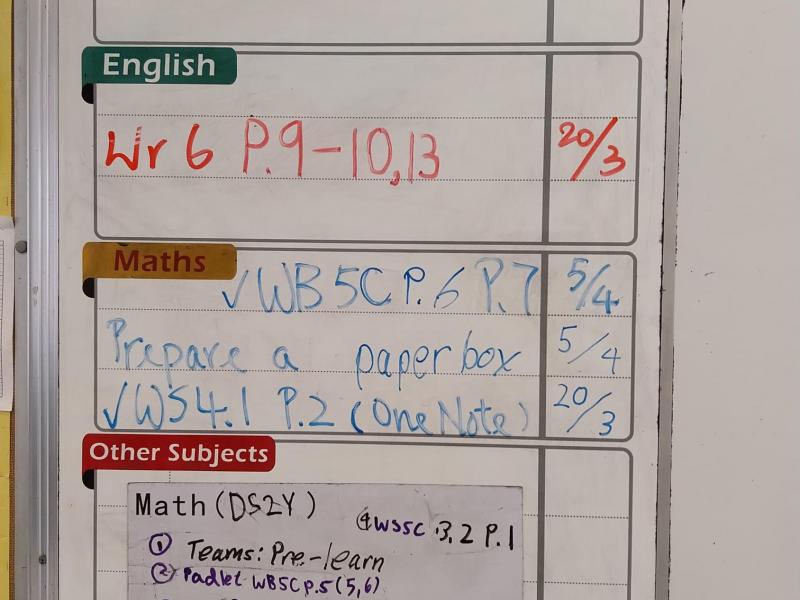 English
Wr 6 P.9-10,13 20/3
Maths
✓WB 5C P.6 P.7 5/4
Prepare a paper box 5/4
✓WS4.1 P.2 (OneNote) 20/3
Other Subjects
Math (DS2Y)
④WS5C 3.2 P.1
① Teams: Pre-learn
② Padlet WB5C p.5 (5,6)